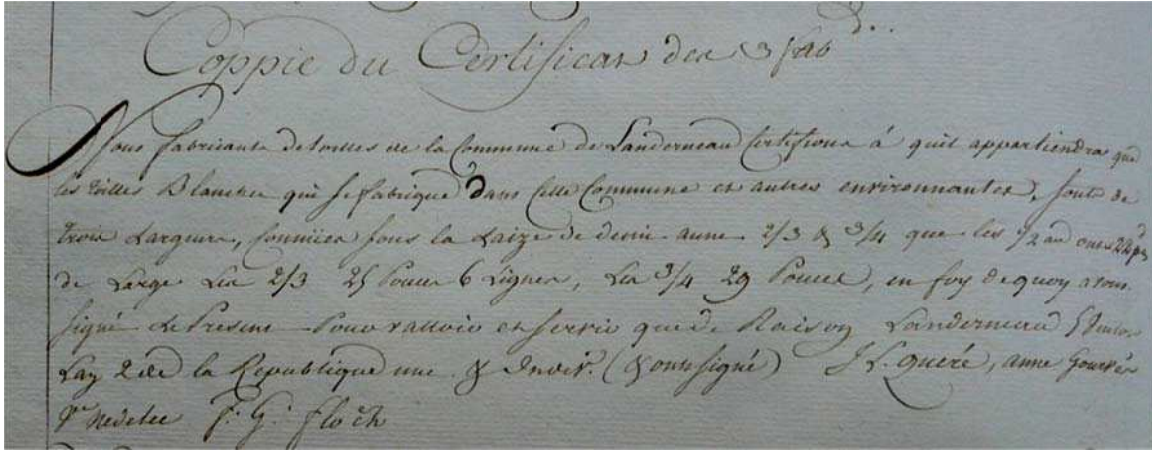 Coppie du Certificat des 3 fab
Nous fabricants de toilles de la Commune de Landerneau Certifions à quil appartiendra que
les toilles Blanches qui se fabrique dans cette Commune et autres environnantes, sonts de
trois Largeurs, Connües sous la Laize de demi aune 2/3 & 3/4 que les 1/2 au ons 22 pes
de Large Les 2/3 25 Pouces 6 Lignes, Les 3/4 29 Pouces, en foy de quoy avons
signé Le Present Pour valloir et servir que de Raison Landerneau 5
Lan 2 de la Republique une & Indivis. (& ont signé) J L. queré, anne gourvès
Ve Nedelec F. G. floch